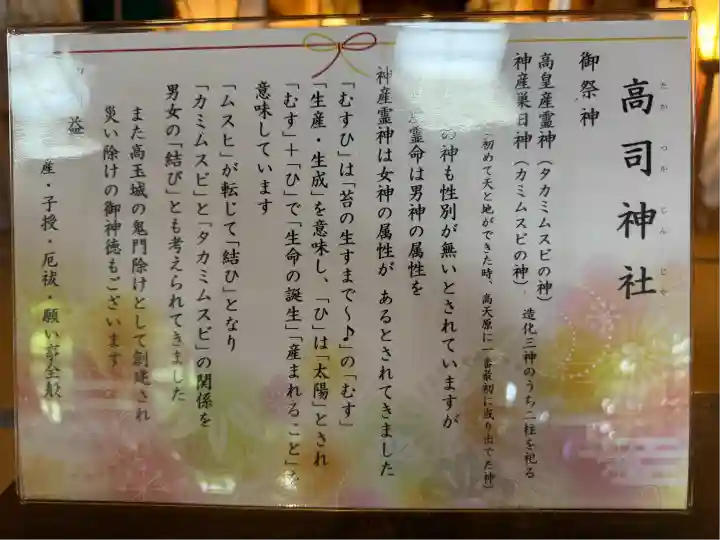 高司神社
たかつかじんじゃ
御祭神
高皇産霊神（タカミムスビの神）
神産巣日神（カミムスビの神）
造化三神のうち二柱を祀る
初めて天と地ができた時、高天原に一番最初に成り出でた神）
の神も性別が無いとされていますが
霊命は男神の属性を
神産霊神は女神の属性が あるとされてきました
「むすひ」は「苔の生すまで〜♪」の「むす」
「生産・生成」を意味し、「ひ」は「太陽」とされ
「むす」＋「ひ」で「生命の誕生」「産まれること」を
意味しています
「ムスヒ」が転じて「結ひ」となり
「カミムスビ」と「タカミムスビ」の関係を
男女の「結び」とも考えられてきました
また高玉城の鬼門除けとして創建され
災い除けの御神徳もございます
益
産・子授・厄祓・願い事全般